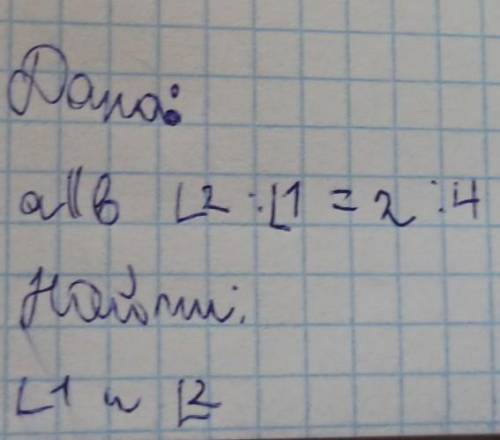 Дано:
a||в ∠2 : ∠1 = 2 : 4
Найти:
∠1 и ∠2